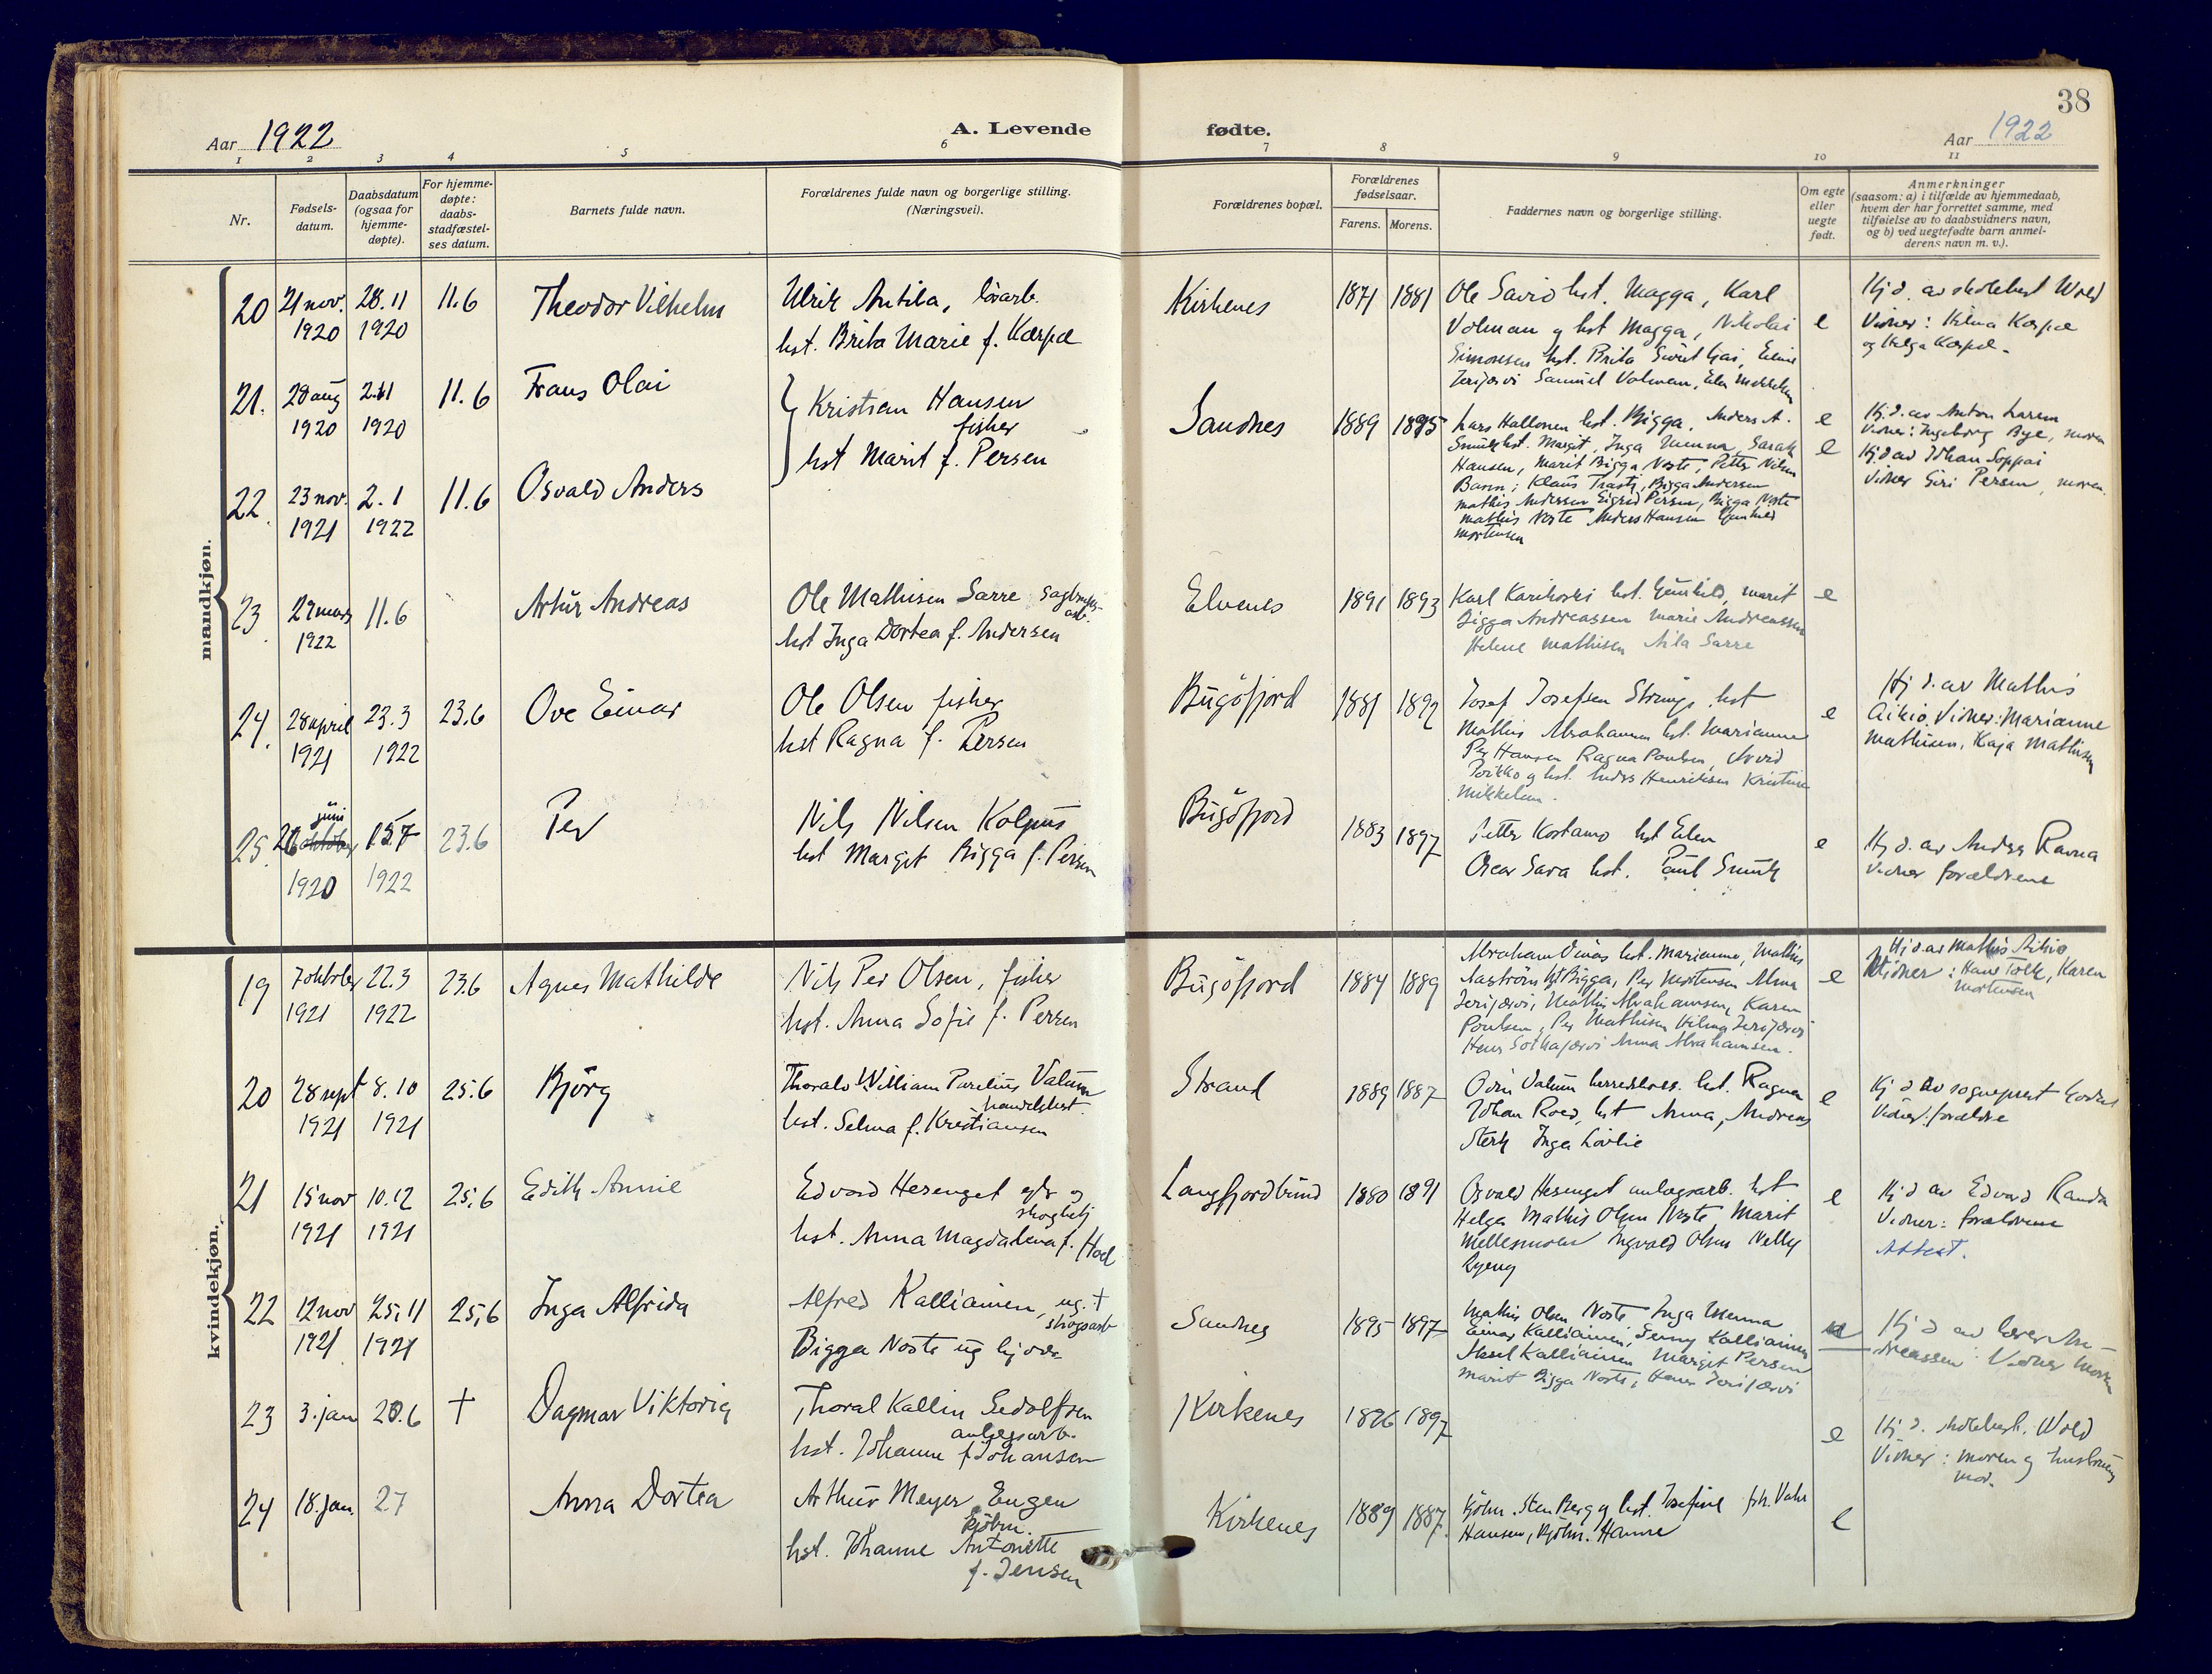 38
Aar 1922
A. Levende fødte.
Aar 1922
1 2 3 4 5 6 7 8 9 10 11
Nr.
Fødsels-
datum.
Daabsdatum
(ogsaa for
hjemme-
døpte).
For hjemme-
døpte:
daabs-
stadfæstel-
ses datum.
Barnets fulde navn.
Forældrenes fulde navn og borgerlige stilling.
(Næringsvei).
Forældrenes bopæl.
Forældrenes
fødselsaar.
Farens. Morens.
Faddernes navn og borgerlige stilling.
Om egte
eller
uegte
født.
Anmerkninger
(saasom: a) i tilfælde av hjemmedaab,
hvem der har forrettet samme, med
tilføielse av to daabsvidners navn,
og b) ved uegtefødte barn anmel-
derens navn m. v.).
mandkjøn.
20 21 nov. 28.11 11.6 Theodor Vilhelm
1920 1920
Ulrik Antila,
hst. Brita Marie f. Karpæ
Kirkenes 1871 1881
Ole Savio hst. Magga, Karl
Volman og hst Magga, Nikolai
Simonsen hst. Brita
Samuel Volman,
e
Hj d. av Wold
Vidner: Hilma Karpæ
og Helga Karpæ.
21. 28 aug 2.11 11.6 Frans Olai
1920 1920
Kristian Hansen
fisker
hst Marit f. Persen
Sandnes 1889 1895
Lars Hallonen hst. Bigga, Anders A.
hst. Margit, Inga Sarah
Hansen, Marit Bigga Noste, Petter Nilsen
Klaus Bigga Andersen
Mathis Andersen Sigrid Persen, Bigga Noste
Mathis Noste Anders Hansen
Mortensen
e
Hj. d. av Anton Larsen
Vidner: Ingeborg Bye, moren
22. 23 nov. 2.1 11.6 Osvald Anders
1921 1922
e
Hj d av Johan Soppai
Vidner Siri Persen, moren.
23 29 mars 11.6 Artur Andreas
1922
Ole Mathisen Sarre Sagbruks-
arb.
hst Inga Dortea f. Andersen
Elvenes 1891 1893
Karl hst. Gunhild, Marit
Bigga Andreassen Marie Andreassen
Helene Mathisen Aila Sarre
e
24. 28 april 23.3 23.6 Ove Einar
1921 1922
Ole Olsen fisker
hst Ragna f. Persen
Bugöfjord 1881 1892
Josef Josefsen hst
Mathis Abrahamsen hst. Marianne
Per Hansen Ragna Poulsen,
og hst. Anders Henriksen Kristine
Mikkelsen.
e
Hj d. av Mathis
Aikio. Vidner: Marianne
Mathisen, Kaja Mathisen
25. juni
15.7 23.6 Per
1920 1922
Nils Nilsen Kolpus
hst Margit Bigga f. Persen
Bugöfjord 1883 1897
Petter Kostamo hst Elen
Oscar Sara hst. Paul
e
Hj d. av Anders Ravna
Vidner forældrene
kvindekjøn.
19 7 oktober 22.3 23.6 Agnes Mathilde
1921 1922
Nils Per Olsen, fisker
hst. Anna Sofie f. Persen
Bugöfjord 1884 1889
Abraham hst. Marianne, Mathis
hst Bigga, Per Mortensen Alma
Mathis Abrahamsen, Karen
Poulsen, Per Mathisen Hilma
Anna Abrahamsen.
e
Hj d. av Mathis Aikio
Vidner: Hans Karen
Mortensen
20 28 sept 8.10 25.6 Björg
1921 1921
Thorald William Valum
handelsbest.
hst. Selma f. Kristiansen
Strand 1889 1887
Odin Valum hst. Ragna
Johan Roed, hst Anna, Andreas
Sterk Inga Lövlie
e
Hj d av sogneprest
Vidner: forældre
21 15 nov 10.12 25.6 Edith Annie
1921 1921
Edvard Hesenget og
hst. Anna Magdalena f.
Langfjordbund 1880 1891
Osvald Hesenget anlægsarb. hst
Helga Mathis Olsen Noste Marit
Ingvald Olsen Nelly
Ryeng
e
Hj. d av Edvard Randa
Vidner: forældrene
Attest.
22 12 nov 25,11 25,6 Inga Alfrida
1921 1921
Alfred Kalliainen, ug. +
skogsarb
Bigga Noste ug
Sandnes 1895 1897
Mathis Olsen Noste Inga
Einar Kalliainen, Jenny Kalliainen
Kalliainen Margit Persen
Marit Bigga Noste,
Hj d av lærer An-
dreassen Vidner moren
23 3. jan 20.6 + Dagmar Viktoria
Thoral Kallin Sedolfsen
anlegsarb.
hst. Johanne f Johansen
Kirkenes 1896 1897
e
Hj. d. Wold
Vidner: moren og
mor.
24 18. jan. 27 Anna Dortea
Arthur Meyer Eugen
kjöbm.
hst. Johanne Antonette
f. Jensen
Kirkenes 1889 1887
Kjöbm. Sten Berg og hst. Josefine
Hansen, kjöbm. Hanne
e